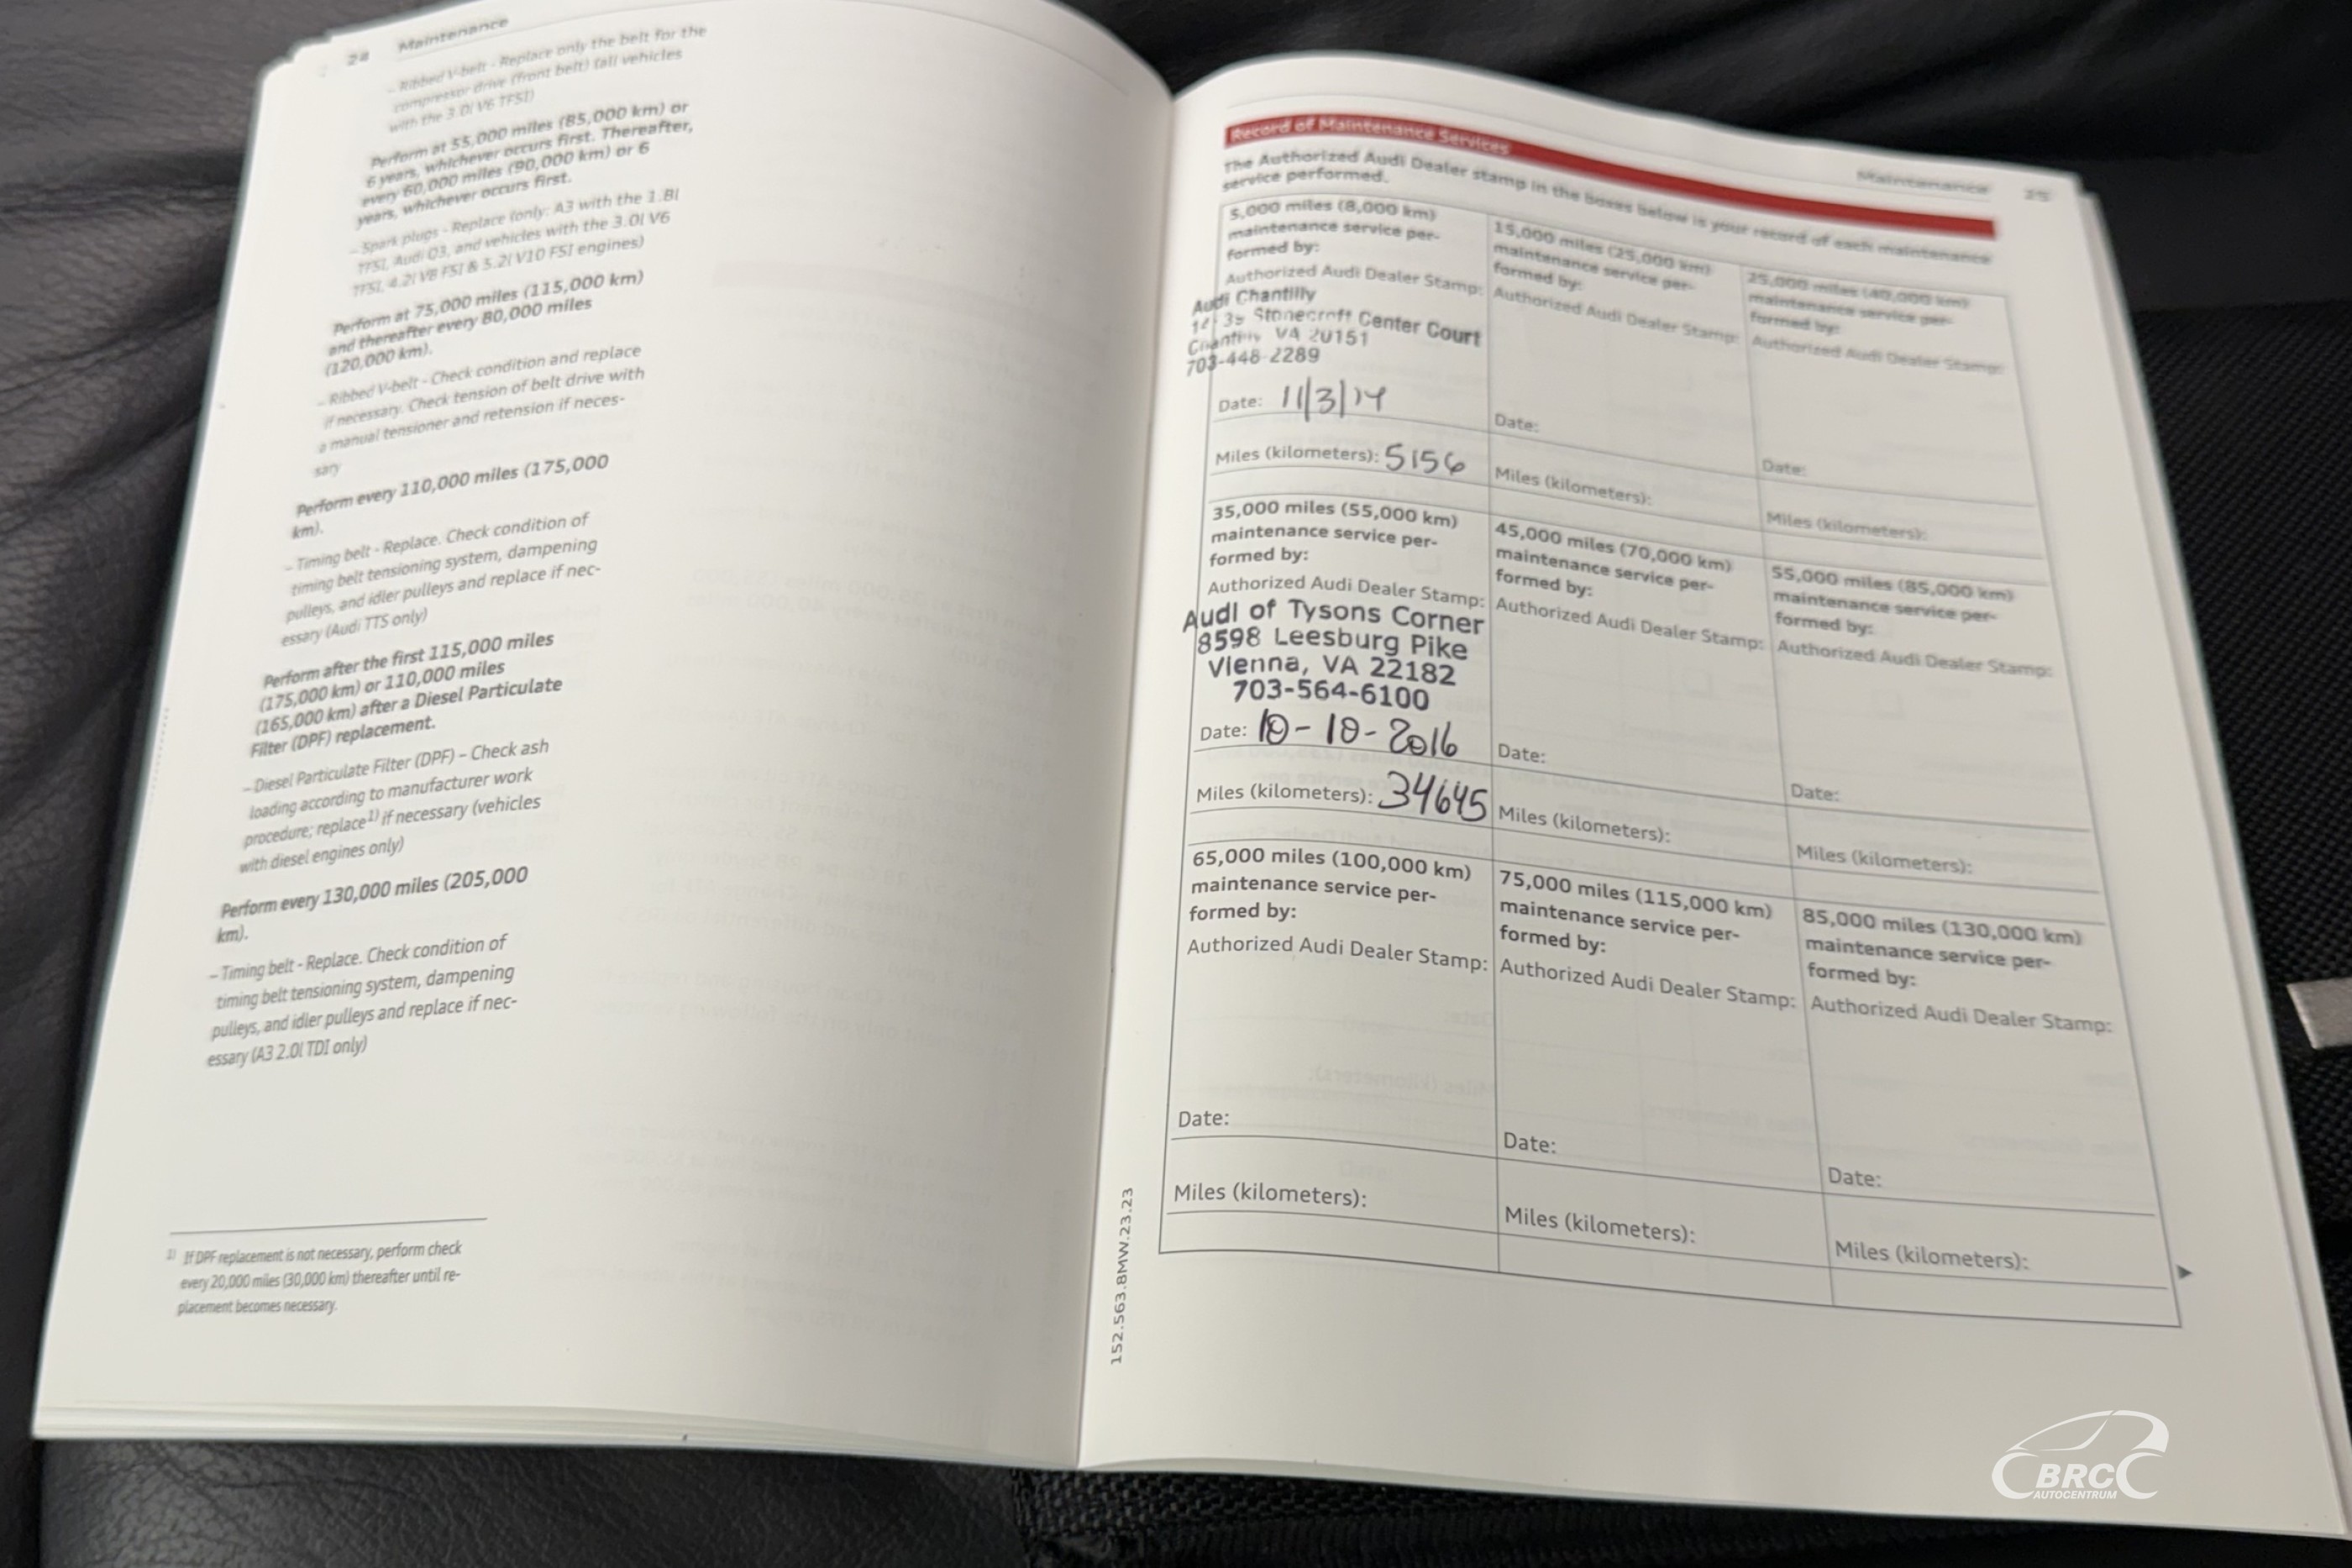 24 Maintenance
– Ribbed V-belt - Replace only the belt for the
compressor drive (front belt) (all vehicles
with the 3.0l V6 TFSI)
Perform at 55,000 miles (85,000 km) or
6 years, whichever occurs first. Thereafter,
every 60,000 miles (90,000 km) or 6
years, whichever occurs first.
– Spark plugs - Replace (only: A3 with the 1.8l
TFSI, Audi Q3, and vehicles with the 3.0l V6
TFSI, 4.2l V8 FSI & 5.2l V10 FSI engines)
Perform at 75,000 miles (115,000 km)
and thereafter every 80,000 miles
(120,000 km).
– Ribbed V-belt - Check condition and replace
if necessary. Check tension of belt drive with
a manual tensioner and retension if neces-
sary
Perform every 110,000 miles (175,000
km).
– Timing belt - Replace. Check condition of
timing belt tensioning system, dampening
pulleys, and idler pulleys and replace if nec-
essary (Audi TTS only)
Perform after the first 115,000 miles
(175,000 km) or 110,000 miles
(165,000 km) after a Diesel Particulate
Filter (DPF) replacement.
– Diesel Particulate Filter (DPF) – Check ash
loading according to manufacturer work
procedure; replace1) if necessary (vehicles
with diesel engines only)
Perform every 130,000 miles (205,000
km).
– Timing belt - Replace. Check condition of
timing belt tensioning system, dampening
pulleys, and idler pulleys and replace if nec-
essary (A3 2.0l TDI only)
1) If DPF replacement is not necessary, perform check
every 20,000 miles (30,000 km) thereafter until re-
placement becomes necessary.
Maintenance 25
Record of Maintenance Services
The Authorized Audi Dealer stamp in the boxes below is your record of each maintenance
service performed.
5,000 miles (8,000 km)
maintenance service per-
formed by:
Authorized Audi Dealer Stamp:
Audi Chantilly
Stonecroft Center Court
VA 20151
703-448-2289
Date: 11/3/14
Miles (kilometers): 5156
15,000 miles (25,000 km)
maintenance service per-
formed by:
Authorized Audi Dealer Stamp:
Date:
Miles (kilometers):
25,000 miles (40,000 km)
maintenance service per-
formed by:
Authorized Audi Dealer Stamp:
Date:
Miles (kilometers):
35,000 miles (55,000 km)
maintenance service per-
formed by:
Authorized Audi Dealer Stamp:
Audi of Tysons Corner
8598 Leesburg Pike
Vienna, VA 22182
703-564-6100
Date: 10-10-2016
Miles (kilometers): 34645
45,000 miles (70,000 km)
maintenance service per-
formed by:
Authorized Audi Dealer Stamp:
Date:
Miles (kilometers):
55,000 miles (85,000 km)
maintenance service per-
formed by:
Authorized Audi Dealer Stamp:
Date:
Miles (kilometers):
65,000 miles (100,000 km)
maintenance service per-
formed by:
Authorized Audi Dealer Stamp:
Date:
Miles (kilometers):
75,000 miles (115,000 km)
maintenance service per-
formed by:
Authorized Audi Dealer Stamp:
Date:
Miles (kilometers):
85,000 miles (130,000 km)
maintenance service per-
formed by:
Authorized Audi Dealer Stamp:
Date:
Miles (kilometers):
152.563.8MW.23.23
BRC
AUTOCENTRUM